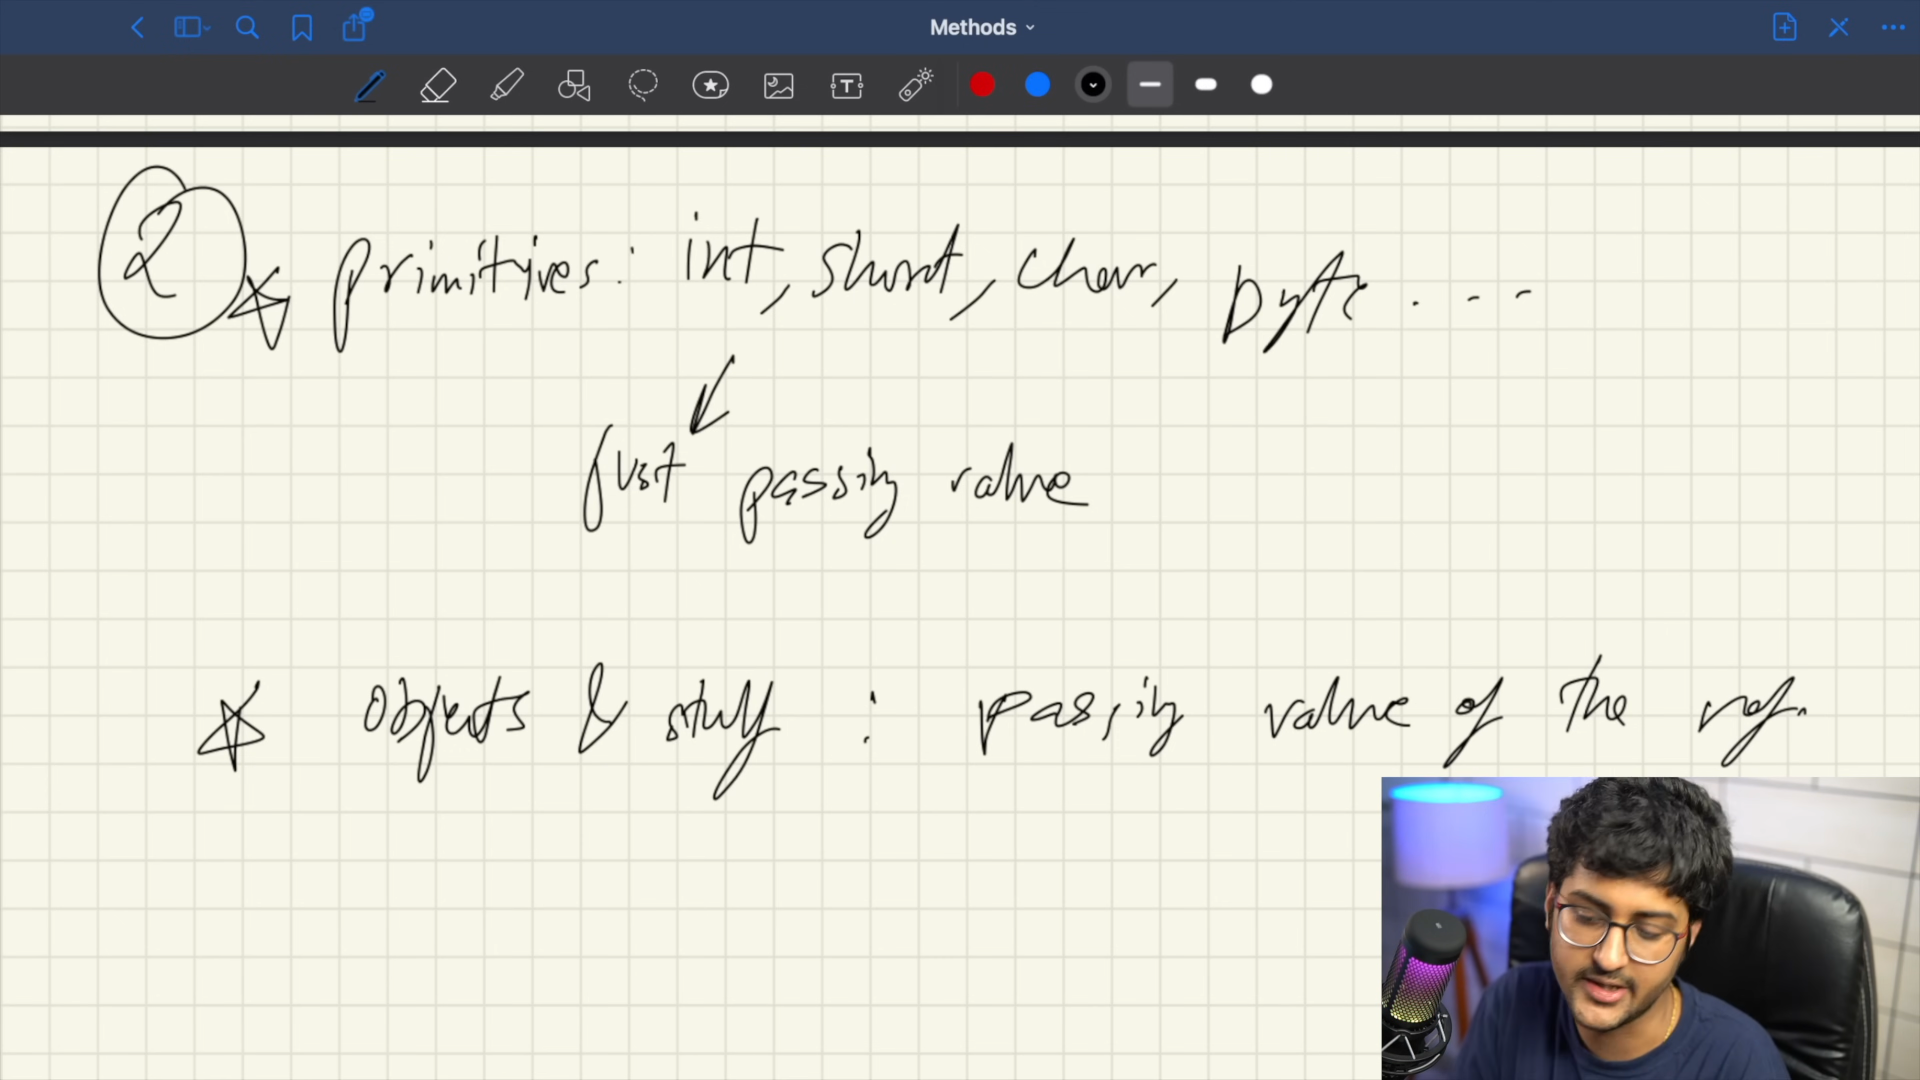 Methods
2
* primitives: int, short, char, byte ....
just passing value
* objects & stuff : passing value of the ref.